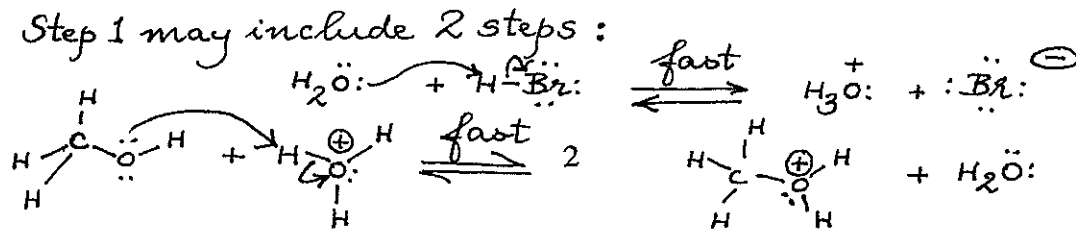 Step 1 may include 2 steps :
H₂Ö: + H-B̈r̤: fast ⇌ H₃O:⁺ + :B̈r̤:⊖
H
H C Ö H + H ⊕ O: H fast ⇌ 2 H H C ⊕ O H + H₂Ö:
H H H H